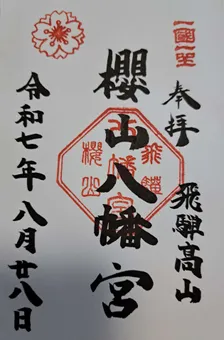 奉拝
飛騨高山
櫻山八幡宮
飛騨
八幡宮
櫻山
令和七年八月廿八日